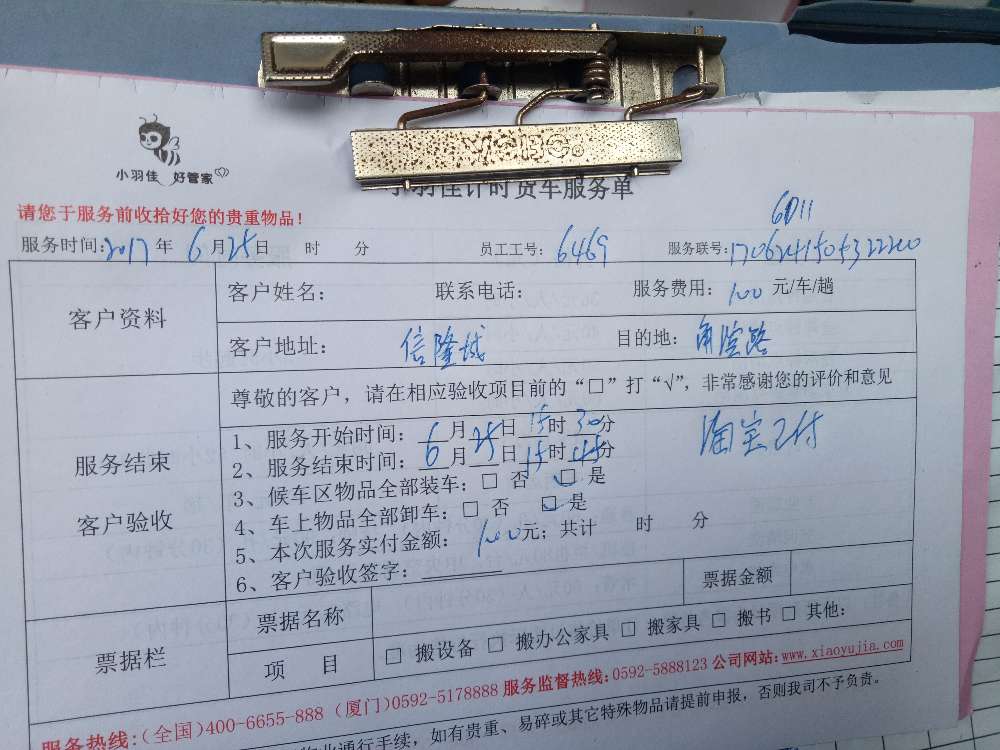 小羽佳 好管家
小羽佳计时货车服务单
请您于服务前收拾好您的贵重物品！
6D11
服务时间：2017年 6月25日 时 分 员工工号：6469 服务联号：170624150532220
客户资料
客户姓名： 联系电话： 服务费用：100 元/车/趟
客户地址： 信隆城 目的地：
尊敬的客户，请在相应验收项目前的“□”打“√”，非常感谢您的评价和意见
服务结束
客户验收
1、服务开始时间：6月25日15时30分
淘宝已付
2、服务结束时间：6月 日15时45分
3、候车区物品全部装车：□ 否 ☑ 是
4、车上物品全部卸车：□ 否 ☑ 是
5、本次服务实付金额：100元；共计 时 分
6、客户验收签字：
票据栏
票据名称 票据金额
项 目 □ 搬设备 □ 搬办公家具 □ 搬家具 □ 搬书 □ 其他：
服务热线：（全国）400-6655-888（厦门）0592-5178888 服务监督热线：0592-5888123 公司网站：www.xiaoyujia.com
物业通行手续，如有贵重、易碎或其它特殊物品请提前申报，否则我司不予负责。